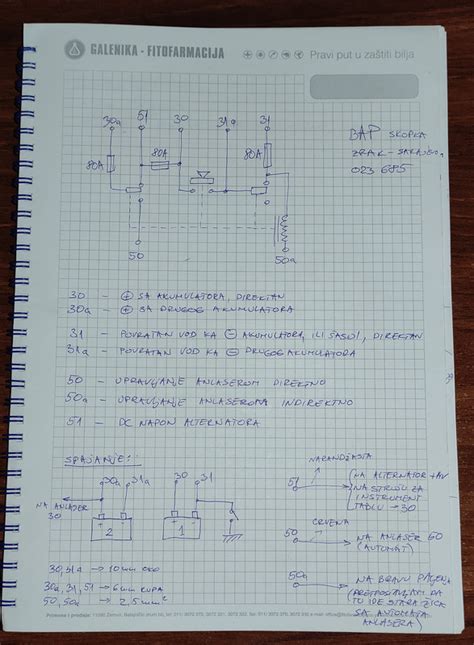 GALENIKA - FITOFARMACIJA
Pravi put u zaštiti bilja
30a 51 30 31a 31
80A 80A 80A
BAP SKOPKA
ZRAK - SARAJEVO
023 685
50 50a
30 - ⊕ SA AKUMULATORA, DIREKTAN
30a - ⊕ SA DRUGOG AKUMULATORA
31 - POVRATAN VOD KA ⊖ AKUMULATORA, ILI ŠASIJI, DIREKTAN
31a - POVRATAN VOD KA ⊖ DRUGOG AKUMULATORA
50 - UPRAVLJANJE ANLASEROM DIREKTNO
50a - UPRAVLJANJE ANLASEROM INDIREKTNO
51 - DC NAPON ALTERNATORA
SPAJANJE:
30a 31a 30 31
NA ANLASER
30
+ - 2
+ - 1
30, 31a → 10mm OKO
30a, 31, 51 → 6mm RUPA
50, 50a → 2,5mm²
NARANDŽASTA
51 NA ALTERNATOR +AV
NA STRUJU ZA
INSTRUMENT
TABLU → 30
CRVENA
50 NA ANLASER 50
(AUTOMAT)
50a NA BRAVU PALJENJA
(PRETPOSTAVLJAM DA
TU IDE STARA ŽICA
SA AUTOMATA
ANLASERA)